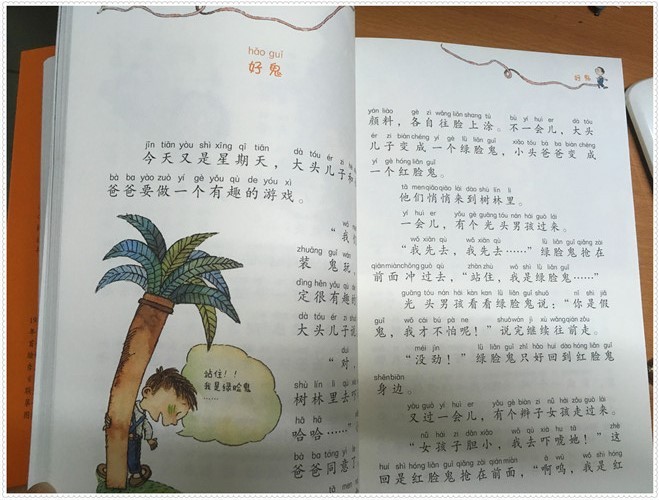 hǎo guǐ
好鬼
jīn tiān yòu shì xīng qī tiān dà tóu ér zi
今天又是星期天，大头儿子和
bà ba yào zuò yí gè yǒu qù de yóu xì
爸爸要做一个有趣的游戏。
“我
zhuāng guǐ wán
装鬼玩，
dìng hěn yǒu
定很有趣的
dà tóu ér zi
大头儿子说
duì
“对，
shù lín lǐ
树林里去吓
hā hā
哈哈……”
bà ba tóng yì
爸爸同意了
站住！！
我是绿脸鬼
……
好鬼
yán liào gè zì wǎng liǎn shang tú bù yí huì er dà tóu
颜料，各自往脸上涂。不一会儿，大头
ér zi biàn chéng yí gè lǜ liǎn guǐ xiǎo tóu bà ba biàn chéng
儿子变成一个绿脸鬼，小头爸爸变成
yí gè hóng liǎn guǐ
一个红脸鬼。
tā men qiāo qiāo lái dào shù lín lǐ
他们悄悄来到树林里。
yí huì er yǒu gè guāng tóu nán hái guò lái
一会儿，有个光头男孩过来。
wǒ xiān qù wǒ xiān qù lǜ liǎn guǐ qiǎng zài
“我先去，我先去……”绿脸鬼抢在
qián miàn chōng guò qù zhàn zhù wǒ shì lǜ liǎn guǐ
前面冲过去，“站住，我是绿脸鬼……”
guāng tóu nán hái kàn kan lǜ liǎn guǐ shuō nǐ shì jiǎ
光头男孩看看绿脸鬼说：“你是假
guǐ wǒ cái bú pà ne shuō wán jì xù wǎng qián zǒu
鬼，我才不怕呢！”说完继续往前走。
méi jìn lǜ liǎn guǐ zhǐ hǎo huí dào hóng liǎn guǐ
“没劲！”绿脸鬼只好回到红脸鬼
shēn biān
身边。
yòu guò yí huì er yǒu gè biàn zi nǚ hái zǒu guò lái
又过一会儿，有个辫子女孩走过来。
nǚ hái zi dǎn xiǎo wǒ qù xià hu tā zhè
“女孩子胆小，我去吓唬她！”这
huí shì hóng liǎn guǐ qiǎng zài qián miàn ā wū wǒ shì hóng
回是红脸鬼抢在前面，“啊呜，我是红